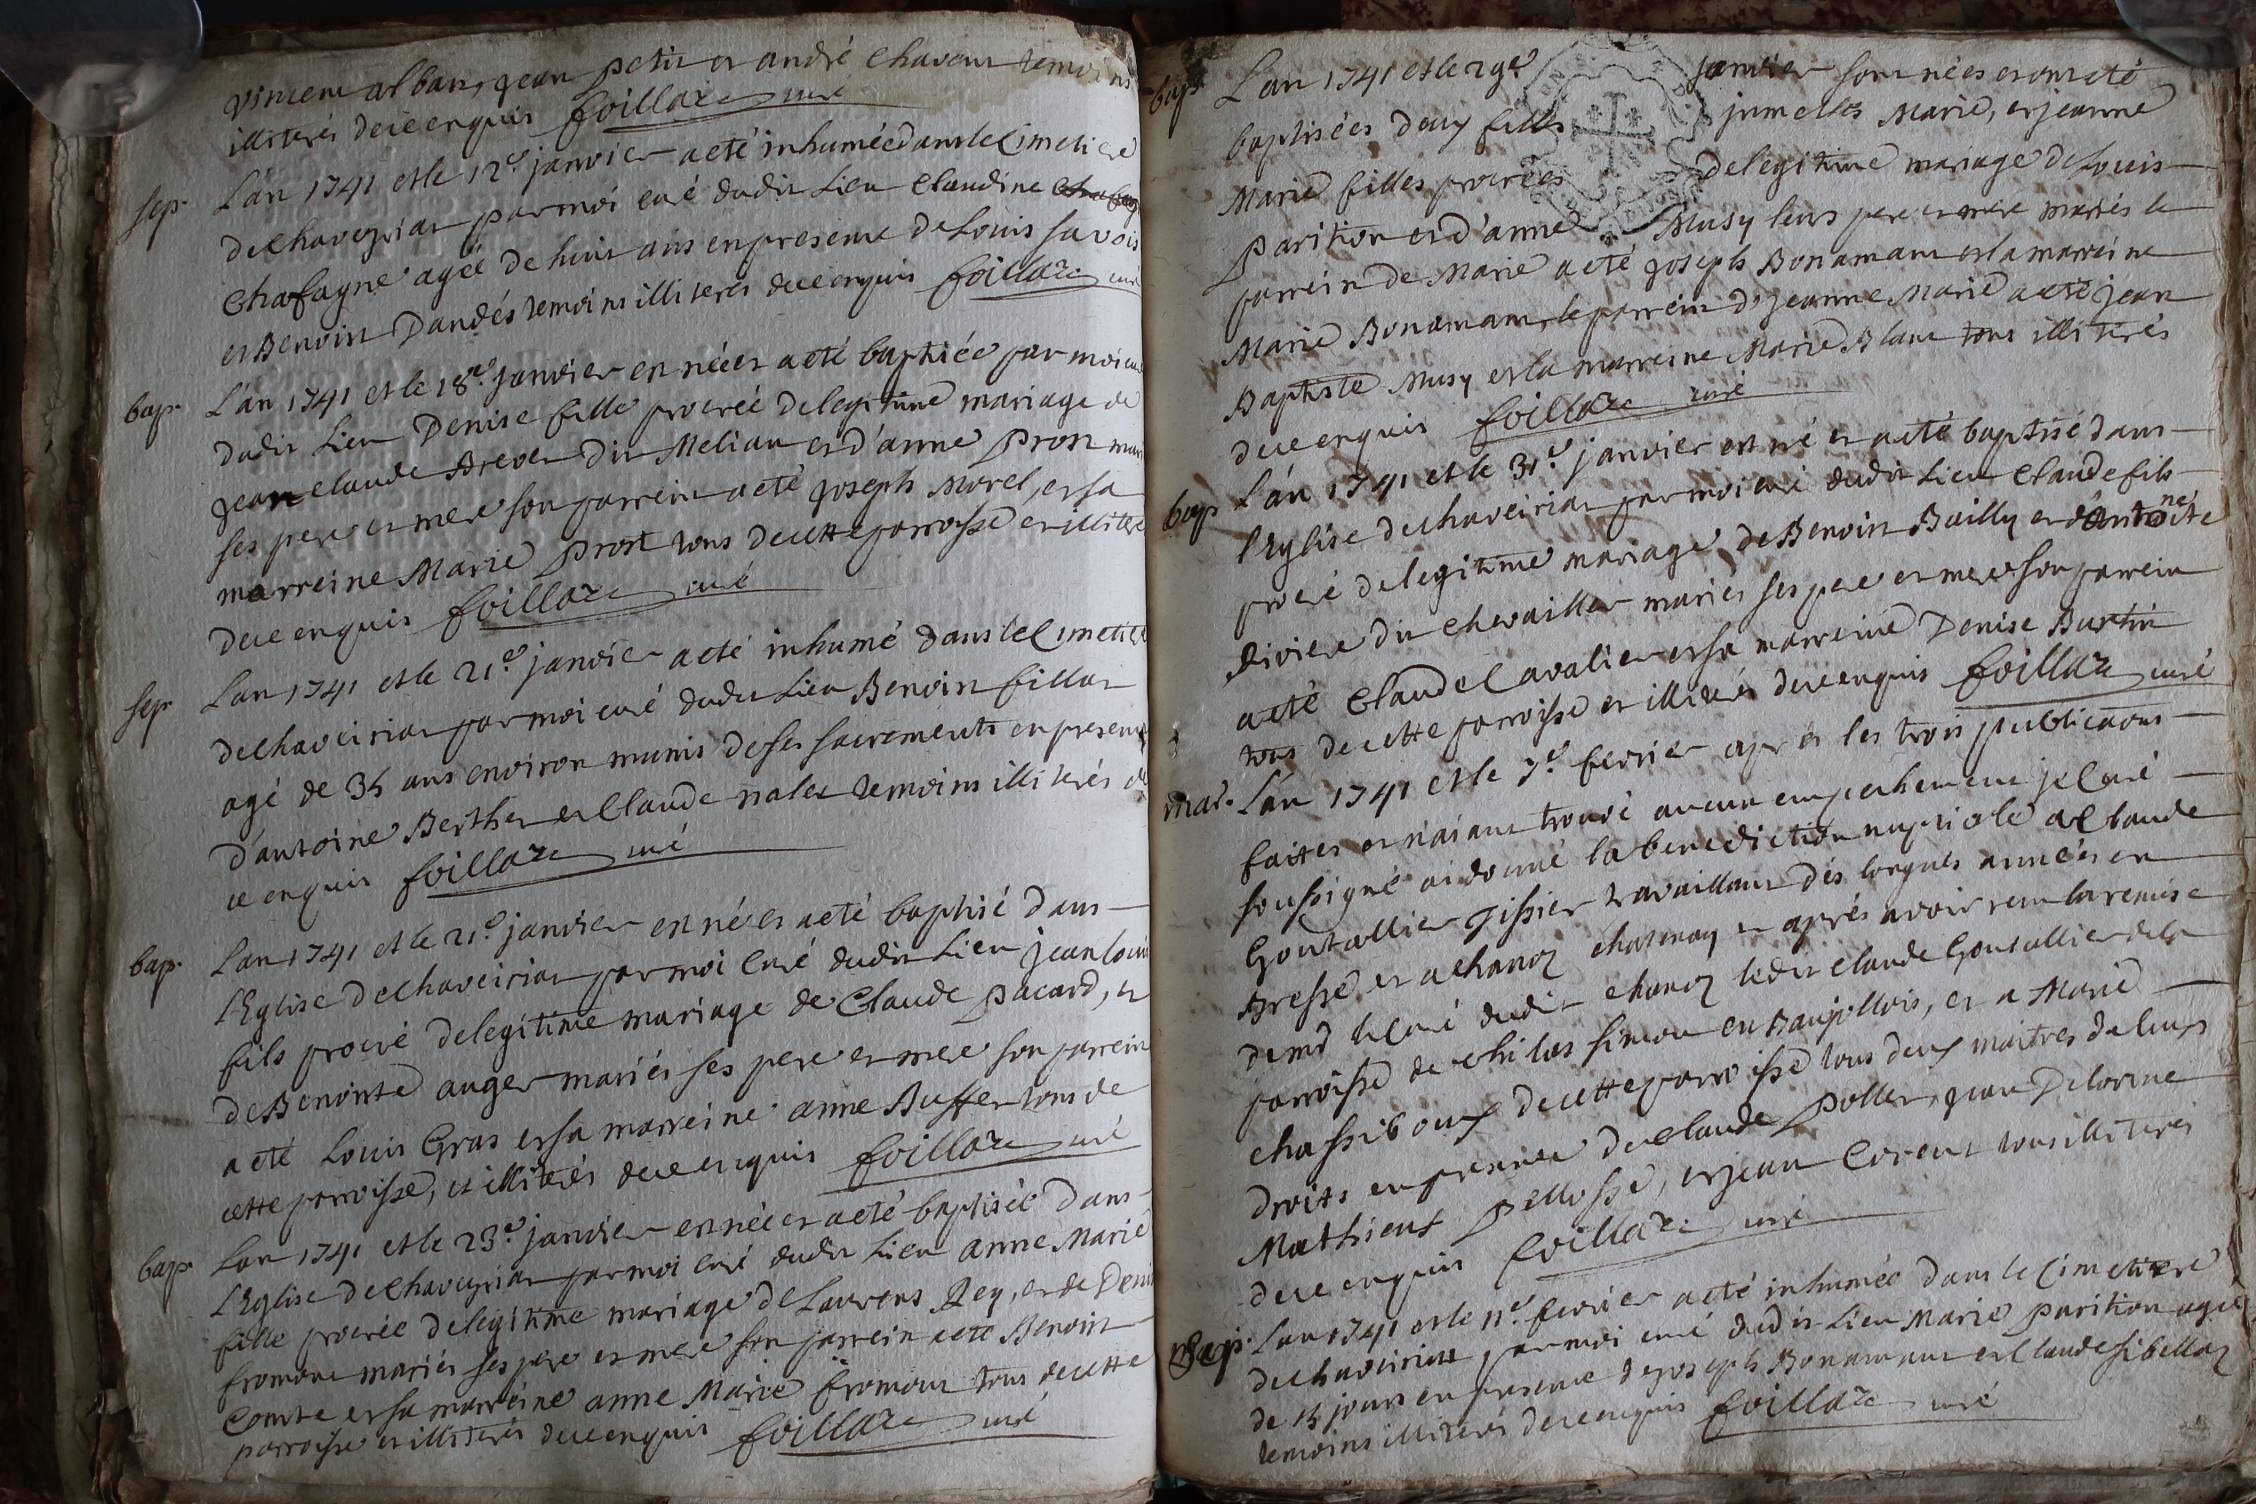 vincent alban, jean petit et andré chaveur temoins
illiterés de ce enquis foillaze curé
sep. L'án 1741 et le 12e. janvier a eté inhumée dans le Cimetiere
de chaveyriat par moi curé dudit Lieu Claudine
Chafagne agée de huit ans en presence de Louis savois
et Benoit Dandés temoins illiterés de ce enquis foillaze curé
bap. L'án 1741 et le 18e. janvier est née et a eté baptiée par moi curé
dudit Lieu Denise fille procreé de legitime mariage de
jean claude Brevet dit Melian et d'anne Prost mari
ses pere et mere son parrein a eté joseph Morel, et sa
marreine Marie Prost tous de cette parroisse et illitere
de ce enquis foillaze curé
sep. Lan 1741 et le 21e. janvier a eté inhumé dans le Cimetiere
de chaveiriat par moi curé dudit Lieu Benoit fillot
agé de 35 ans environ munis de ses sacrements en presence
d'antoine Berthet et Claude nalet temoins illiterés de
ce enquis foillaze curé
bap. Lan 1741 et le 21e. janvier est né et a eté baptisé dans
l'Eglise de chaveiriat par moi Curé dudit Lieu jean louis
fils procreé de legitime mariage de Claude pacard, et
de Benoite auger mariés ses pere et mere son parrein
a eté Louis Gras et sa marreine anne Buffet tous de
cette parroisse, et illiterés de ce enquis foillaze curé
bap. Lan 1741 et le 23e. janvier est née et a eté baptisée dans
l'Eglise de Chaveyriat par moi Curé dudit Lieu anne Marie
fille procreée de legitime mariage de Laurens Rey, et de Deni
fromont mariés ses pere et mere son parrein a eté Benoit
Comte et sa marreine anne Marie fromont tous de cette
parroisse et illiterés de ce enquis foillaze curé
bap. L'an 1741 et le 29e. janvier sont nées et ont eté
baptisées deux filles jumelles Marie, et jeanne
Marie filles procreées de legitime mariage de Louis
parition et d'anne Musy leurs pere et mere mariés le
parrein de Marie a eté joseph Bonamant et la marreine
Marie Bonamant, le parrein d'jeanne Marie a eté jean
Baptiste Musy et la marreine Marie Blanc tous illiterés
de ce enquis foillaze curé
bap. L'án 1741 et le 31e. janvier est né et a eté baptisé dans
l'Eglise de chaveiriat par moi curé dudit Lieu Claude fils
procreé de legitime mariage de Benoit Bailly et d'Antoinete
Riviere dit chevailler mariés ses pere et mere son parrein
a eté Claude Cavalier et sa marreine Denise Burtin
tous de cette parroisse et illiterés de ce enquis foillaze curé
mar. L'án 1741 et le 7e. fevrier aprés les trois publications
faites et n'aiant trouvé aucun empechement je Curé
soussigné ai donné la benediction nuptiale a Claude
Goutallier Tissier travaillant dés longues années en
Bresse et a chanoz chatenay et aprés avoir reçu la remise
de mr le Curé dudit chanoz ledit Claude Goutallier de la
parroisse de en Baujollois, et a Marie
Chassibouf de cette parroisse tous deux maitres de leurs
droits en presence de Claude Pollet, jean Delorme
Mathieux Pellosse, et jean Corent tous illiterés
de ce enquis foillaze curé
Sep. Lan 1741 et le 11e. fevrier a eté inhumée dans le Cimetiere
de chaveiriat, par moi curé dudit Lieu Marie parition agée
de 15 jours en presence de joseph Bonamant et Claude sibellaz
temoins illiterés de ce enquis foillaze curé